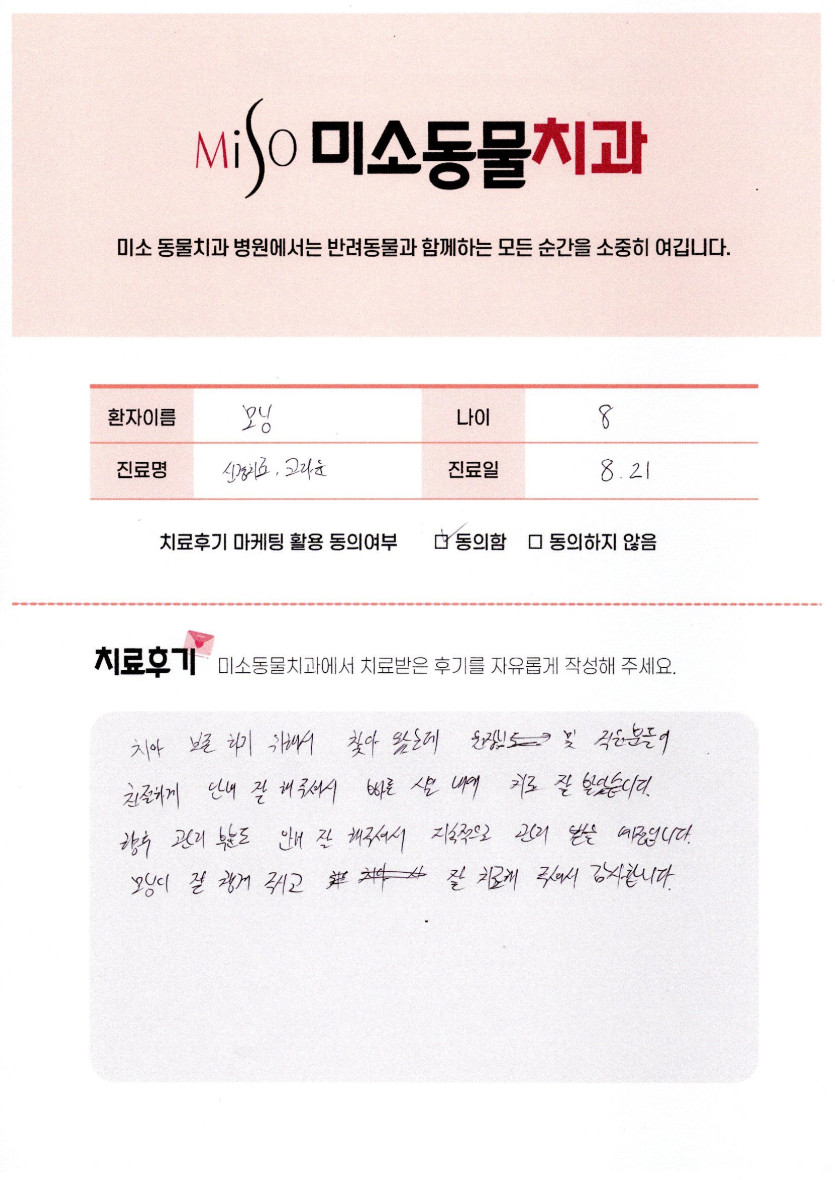 MiSO 미소동물치과
미소 동물치과 병원에서는 반려동물과 함께하는 모든 순간을 소중히 여깁니다.
환자이름 모닝 나이 8
진료명 신경치료, 크라운 진료일 8.21
치료후기 마케팅 활용 동의여부 ☑ 동의함 □ 동의하지 않음
치료후기 미소동물치과에서 치료받은 후기를 자유롭게 작성해 주세요.
치아 보존 하기 위해서 찾아 왔는데 원장님 및 직원분들이
친절하게 안내 잘 해주셔서 빠른 시일 내에 치료 잘 받았습니다.
향후 관리 부분도 안내 잘 해주셔서 지속적으로 관리 받을 예정입니다.
모닝이 잘 챙겨 주시고 잘 치료해 주셔서 감사합니다.